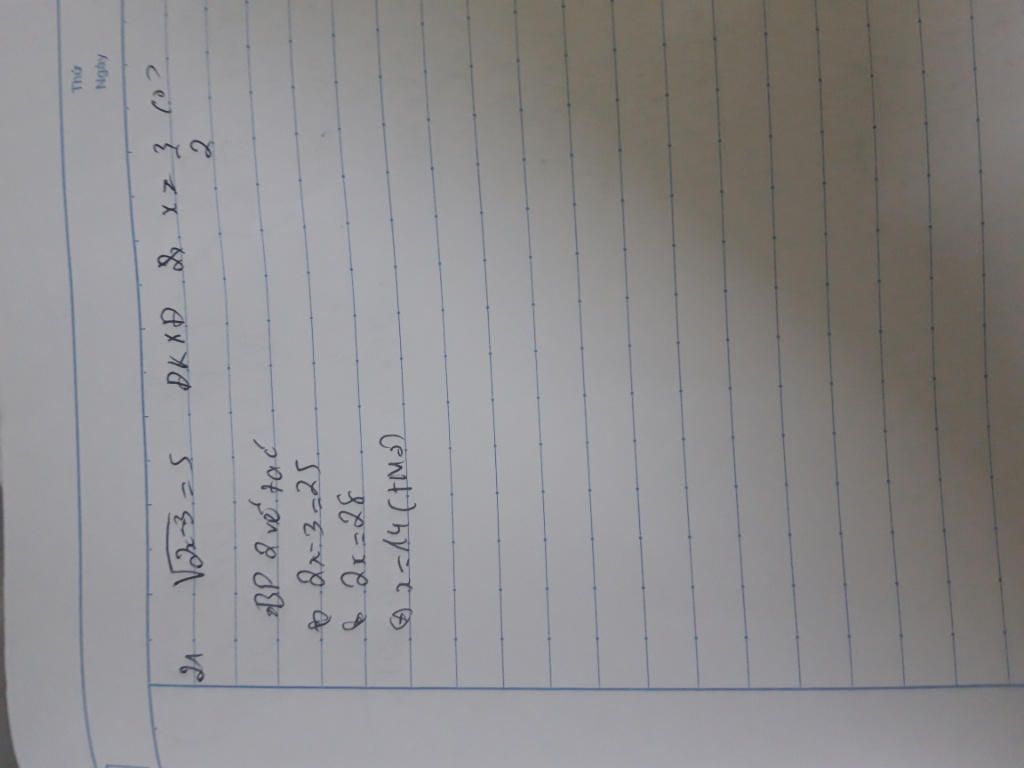 Thứ
Ngày
21 √2x-3 = 5 ĐKXĐ x ≥ 3/2
BP 2 vế ta có
⇔ 2x-3=25
⇔ 2x=28
⇔ x=14 (TM)